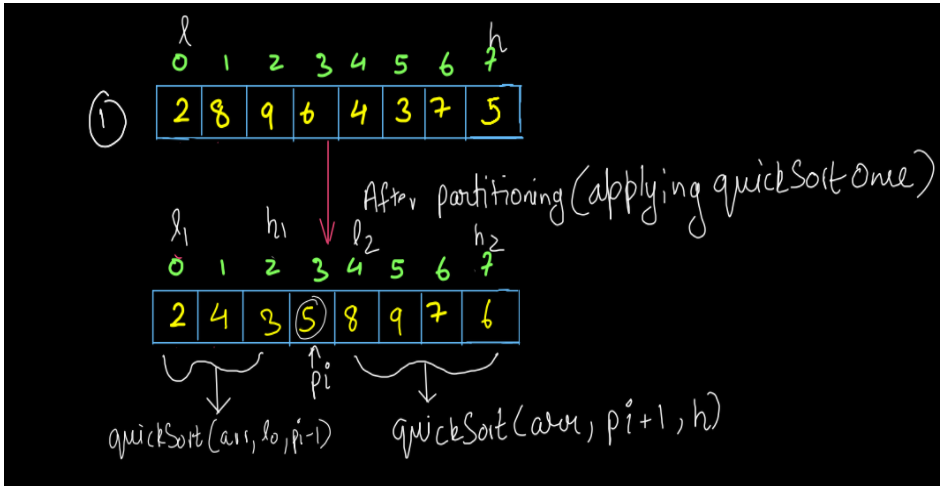 l h
0 1 2 3 4 5 6 7
① 2 8 9 6 4 3 7 5
After partitioning (applying quickSort Once)
l1 h1 l2 h2
0 1 2 3 4 5 6 7
2 4 3 5 8 9 7 6
↑
pi
quickSort(arr, lo, pi-1) quickSort(arr, pi+1, h)